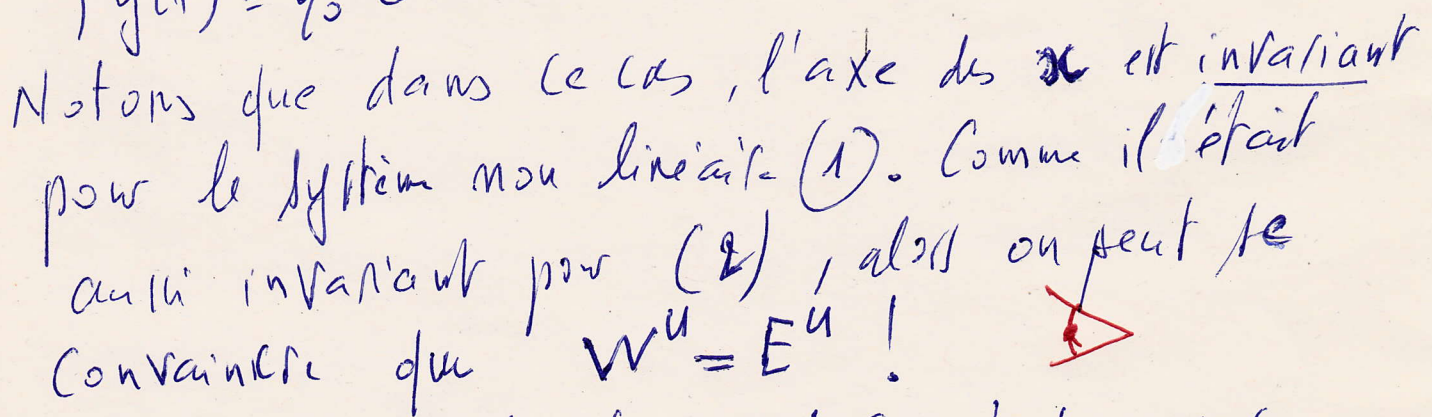 Notons que dans ce cas, l'axe des x est invariant
pour le système non linéaire (1). Comme il était
aussi invariant pour (2), alors on peut se
convaincre que W^u = E^u !